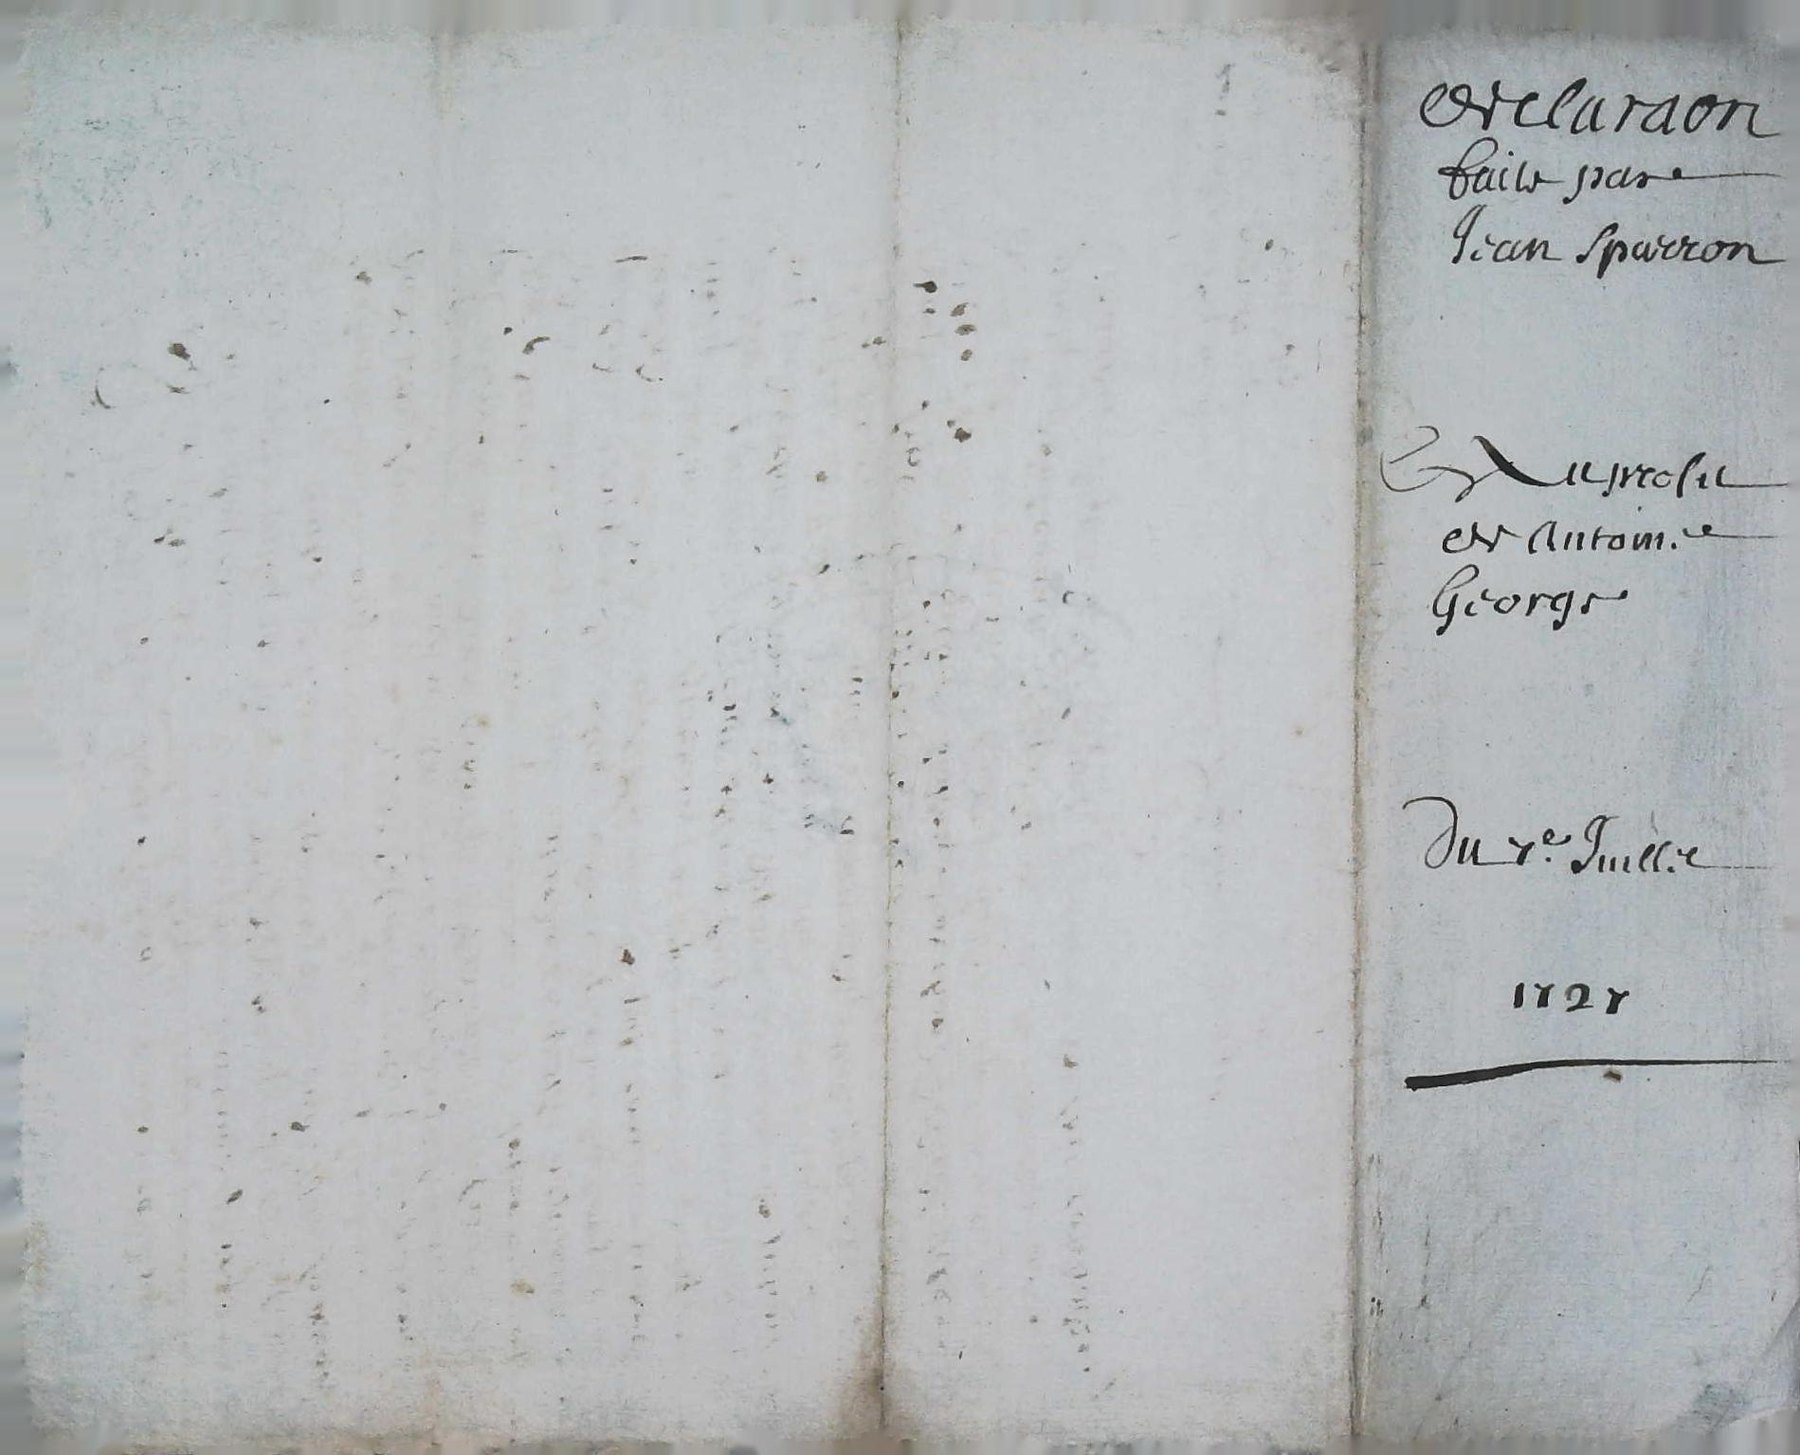 Declaraon
faite par
Jean Sparron
Au profit
de Antoin.e
George
Du 7e. Juill.e
1727